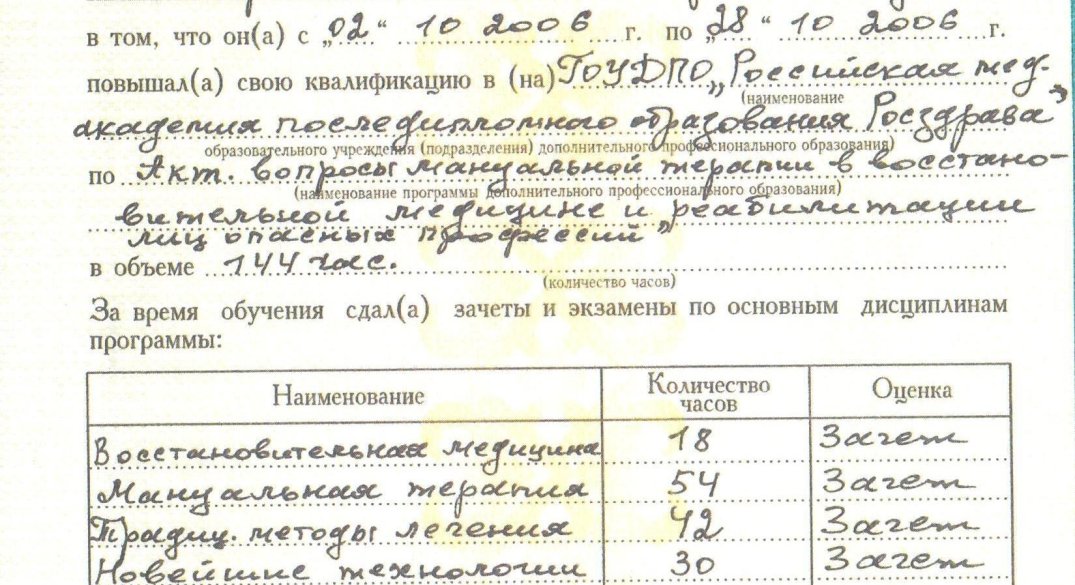 в том, что он(а) с „02“ 10 2006 г. по „28“ 10 2006 г.
повышал(а) свою квалификацию в (на) ГОУДПО „Российская мед.
(наименование
академия последипломного образования Росздрава”
образовательного учреждения (подразделения) дополнительного профессионального образования)
по Акт. вопросы мануальной терапии в восстано-
(наименование программы дополнительного профессионального образования)
вительной медицине и реабилитации
лиц опасных профессий”
в объеме 144 час.
(количество часов)
За время обучения сдал(а) зачеты и экзамены по основным дисциплинам
программы:
Наименование Количество часов Оценка
Восстановительная медицина 18 Зачет
Мануальная терапия 54 Зачет
Традиц. методы лечения 42 Зачет
Новейшие технологии 30 Зачет